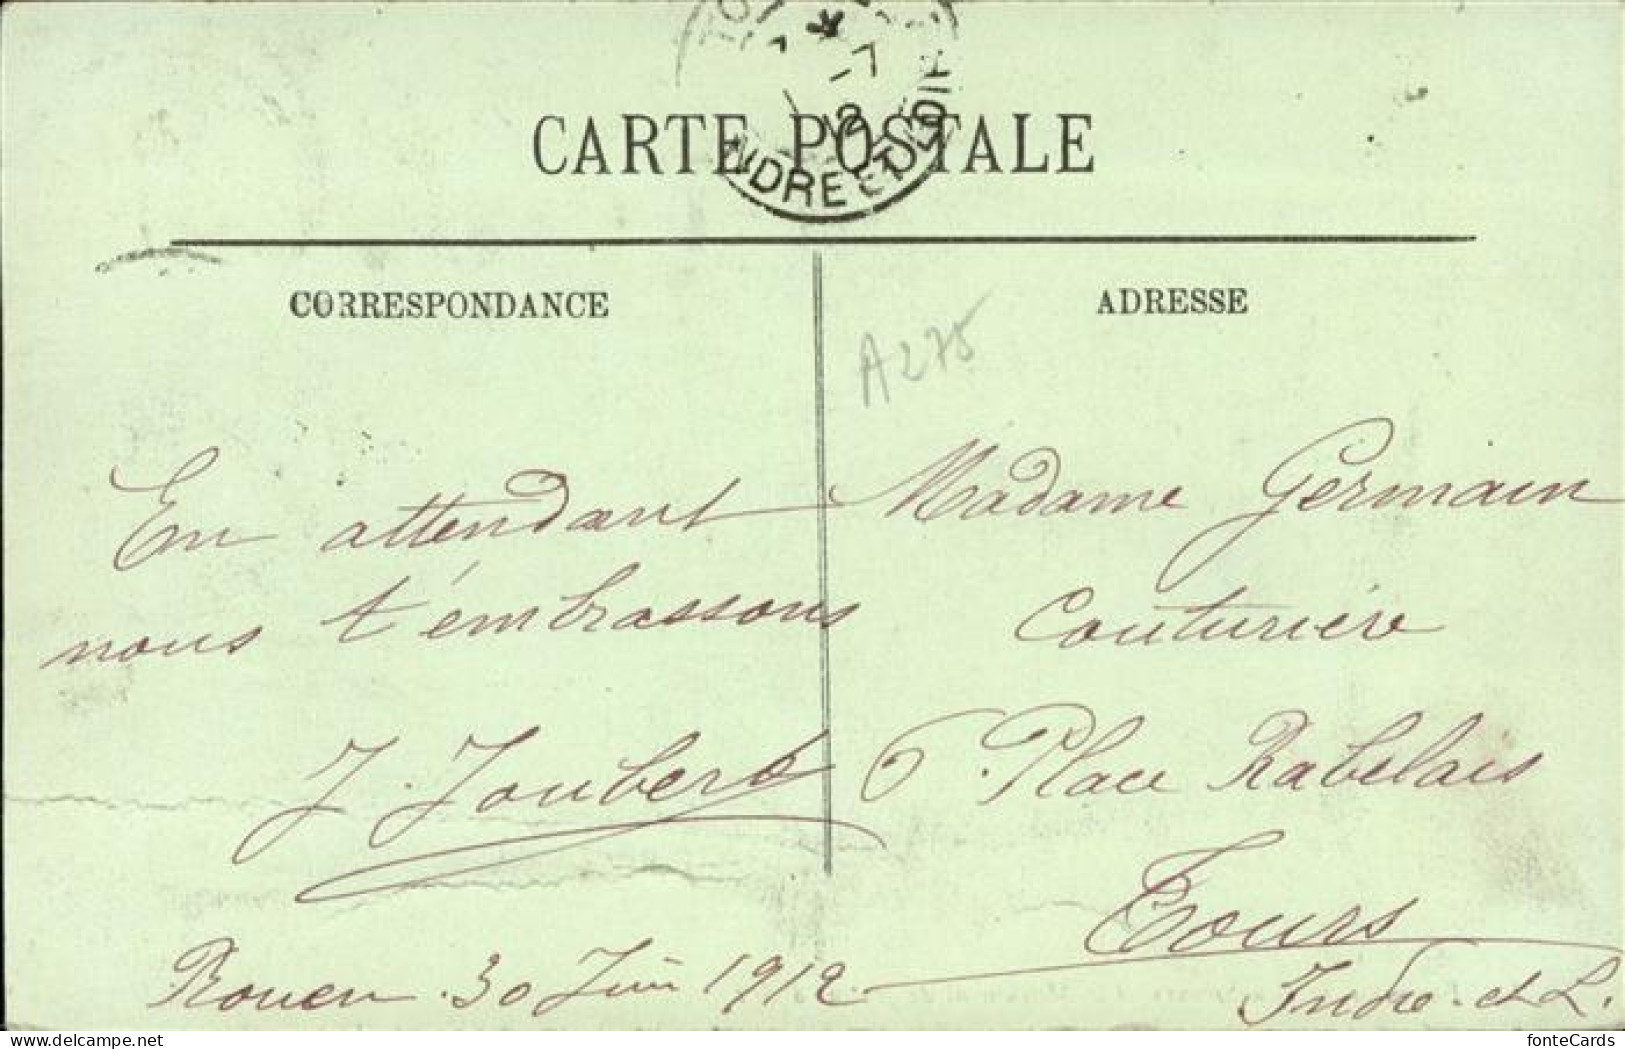 CARTE POSTALE
INDRE ET LOIRE
12
CORRESPONDANCE
ADRESSE
A275
En attendant
nous t'embrassons
J. Joubert
Rouen . 30 Juin 1912
Madame Germain
Couturière
6 . Place Rabelais
Tours
Indre-et L.
delcampe.net
fonteCards